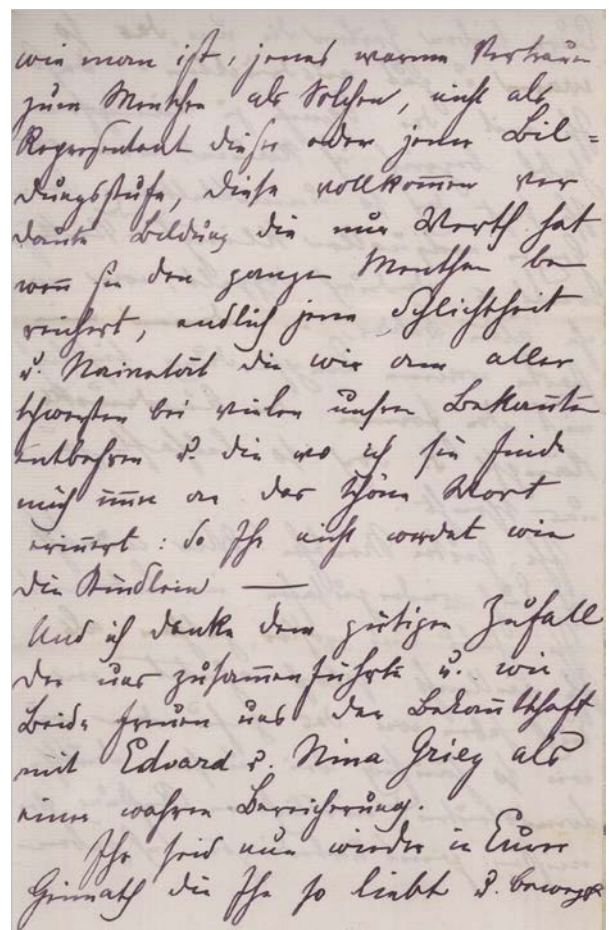 wie man ist, jenes warme Vertrauen
zum Menschen als Solchen, nicht als
Representant dieser oder jener Bil=
dungsstufe, diese vollkom̅en ver
daute Bildung die nur Werth hat
wen̅ sie den ganzen Menschen be
reichert, endlich jene Schlichtheit
u. Naivetät die wir am aller
schwersten bei vielen unsrer Bekan̅ten
entbehren u. die wo ich sie finde
mich im̅er an das schöne Wort
erin̅ert: So Ihr nicht werdet wie
die Kindlein —
Und ich danke dem gütigen Zufall
der uns zusam̅enführte u. wir
Beide freuen uns der Bekan̅tschaft
mit Edvard u. Nina Grieg als
einer wahren Bereicherung.
Ihr seid nun wieder in Eurer
Heimath die Ihr so liebt u. bewegt